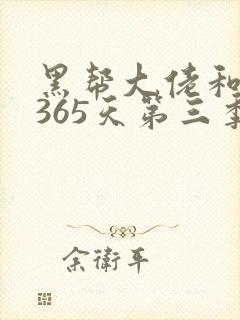 黑帮大佬和
365天第三季
余衛平